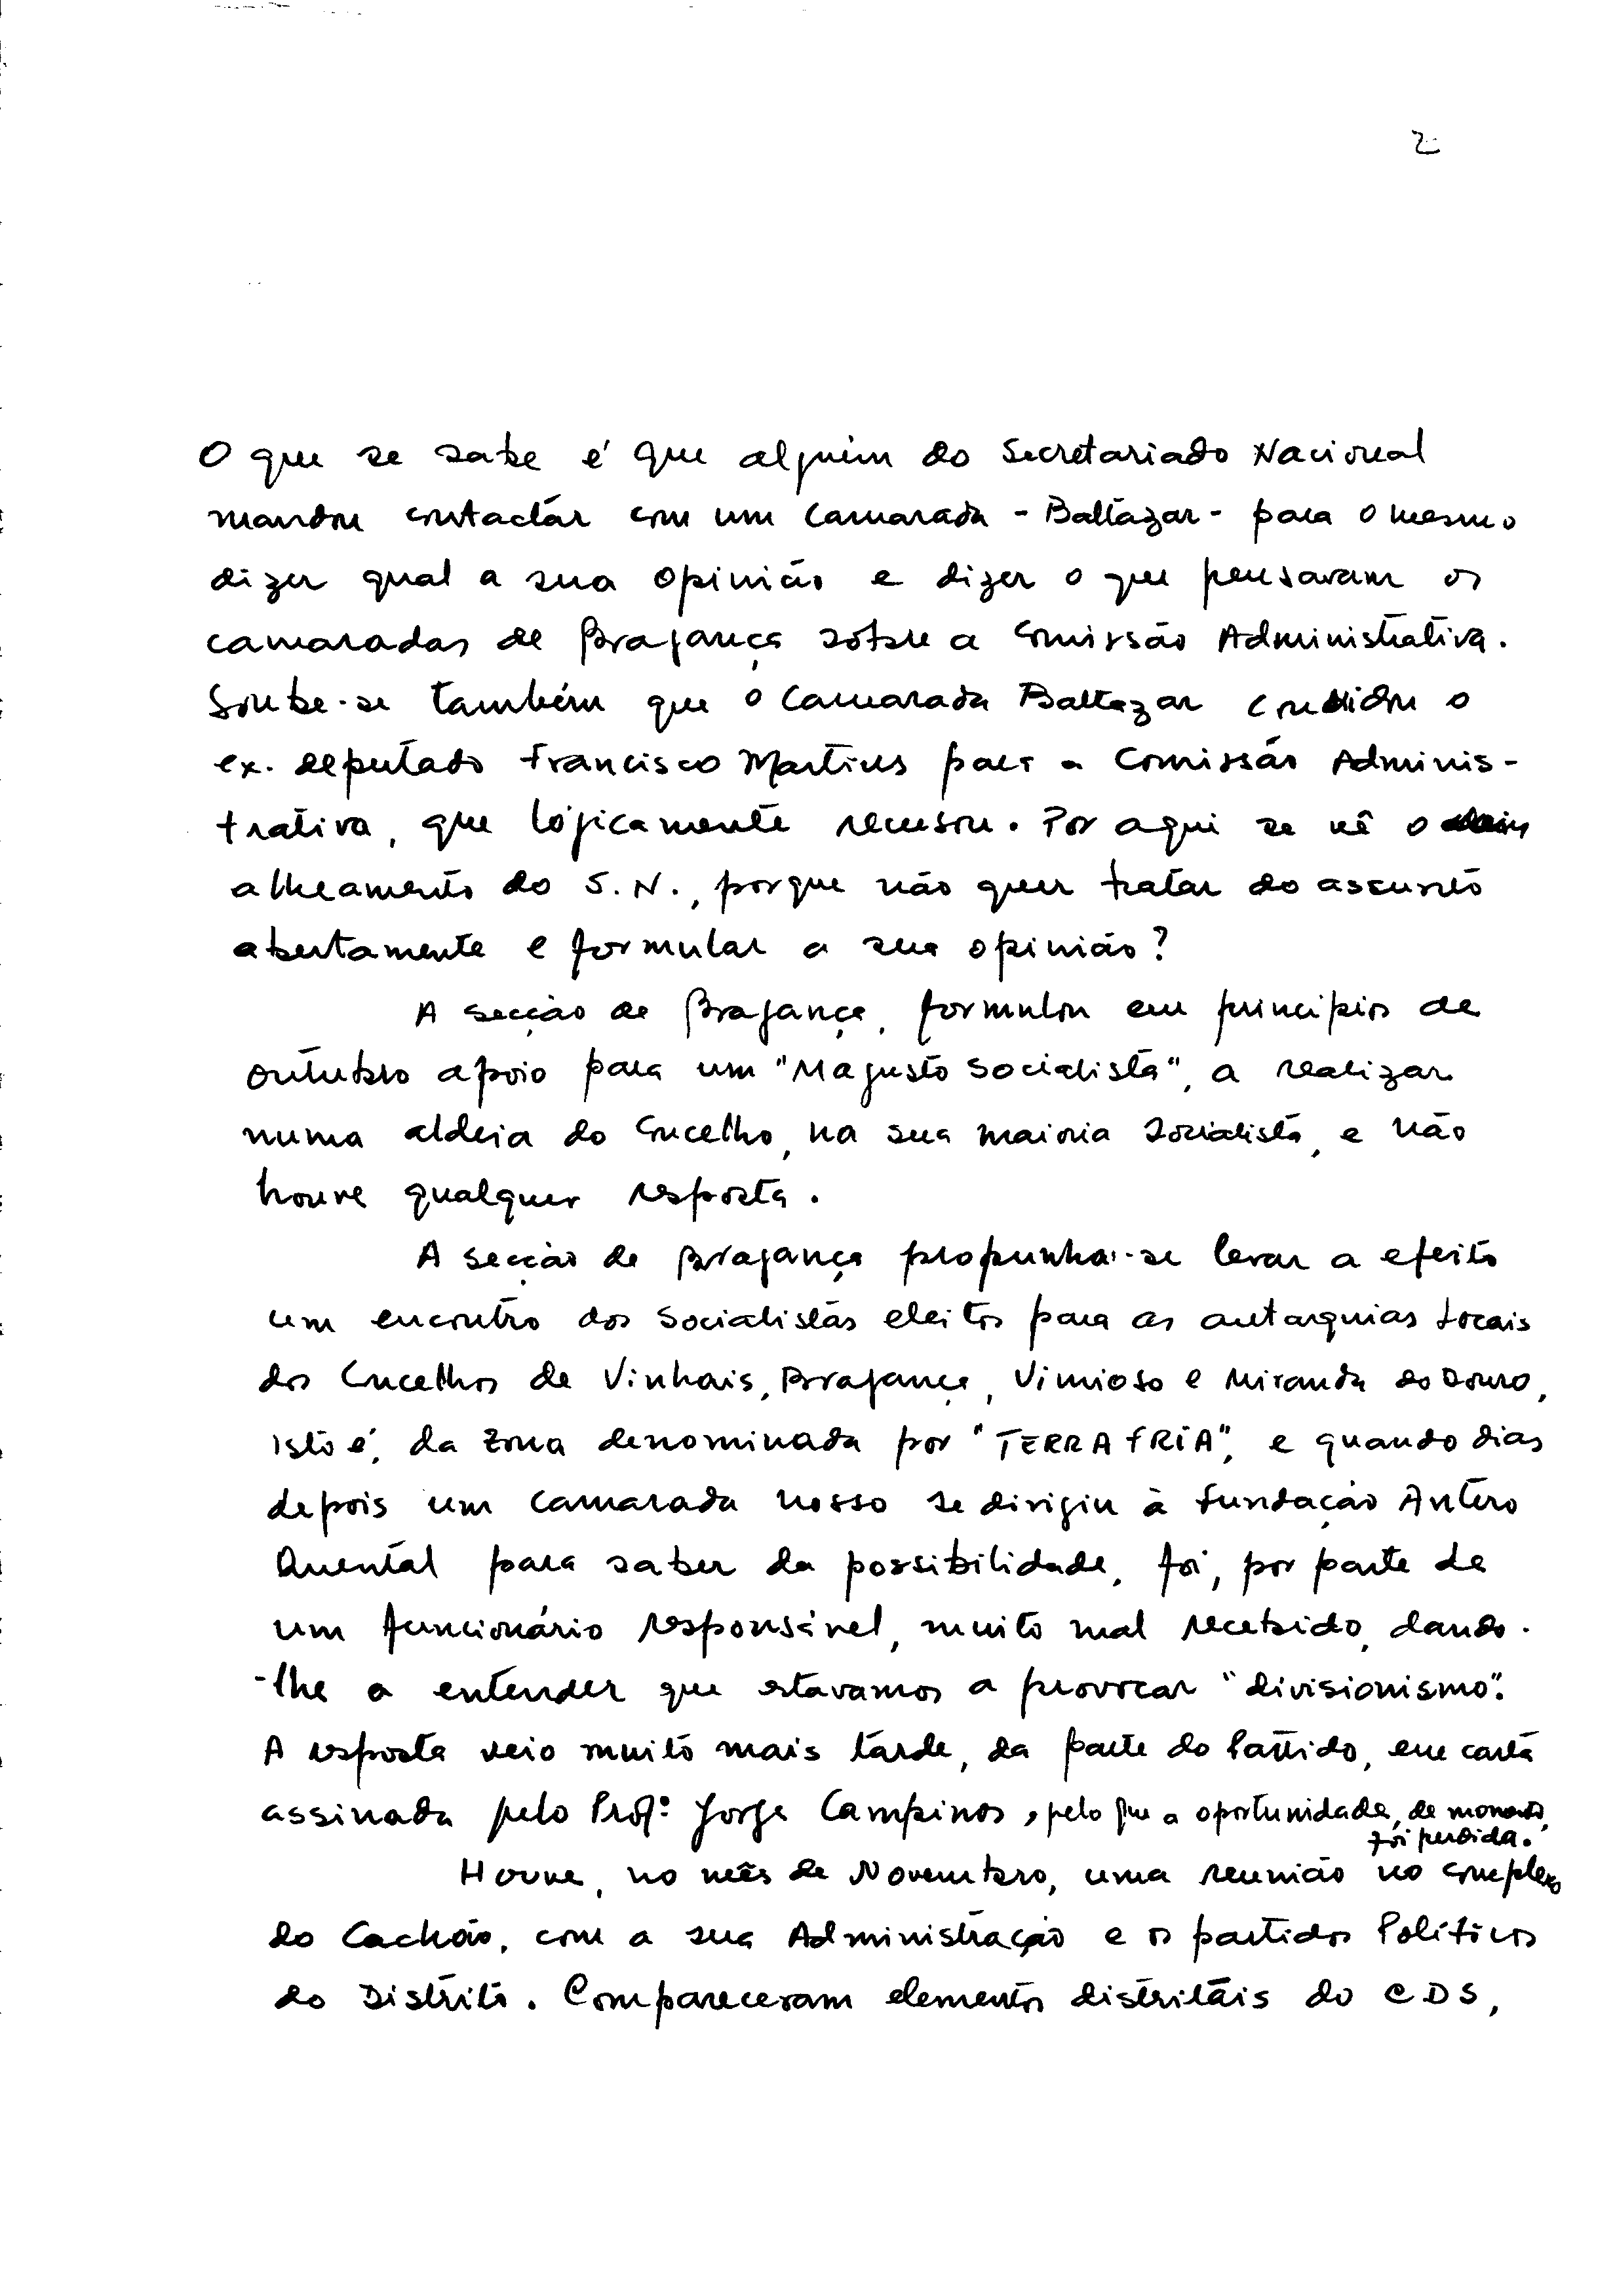 2
O que se sabe é que alguém do Secretariado Nacional
mandou contactar com um camarada - Baltazar - para o mesmo
dizer qual a sua opinião e dizer o que pensavam os
camaradas de Bragança sobre a Comissão Administrativa.
Soube-se também que o camarada Baltazar convidou o
ex. deputado Francisco Martins para a Comissão Adminis-
trativa, que lógicamente recusou. Por aqui se vê o
alheamento do S.N., porque não quer tratar do assunto
abertamente e formular a sua opinião?
A secção de Bragança, formulou em princípios de
outubro apoio para um "Magusto Socialista", a realizar
numa aldeia do Concelho, na sua maioria Socialista, e não
houve qualquer resposta.
A secção de Bragança propunha-se levar a efeito
um encontro dos Socialistas eleitos para as autarquias Locais
dos Concelhos de Vinhais, Bragança, Vimioso e Miranda do Douro,
isto é, da zona denominada por "TERRA FRIA", e quando dias
depois um camarada nosso se dirigiu à Fundação Antero
Quental para saber da possibilidade, foi, por parte de
um funcionário responsável, muito mal recebido, dando-
-lhe a entender que estavamos a provocar "divisionismo".
A resposta veio muito mais tarde, da parte do Partido, em carta
assinada pelo Profº Jorge Campinos, pelo que a oportunidade, de momento,
foi perdida.
Houve, no mês de Novembro, uma reunião no complexo
do Cachão, com a sua Administração e os partidos Políticos
do Distrito. Compareceram elementos distritais do CDS,